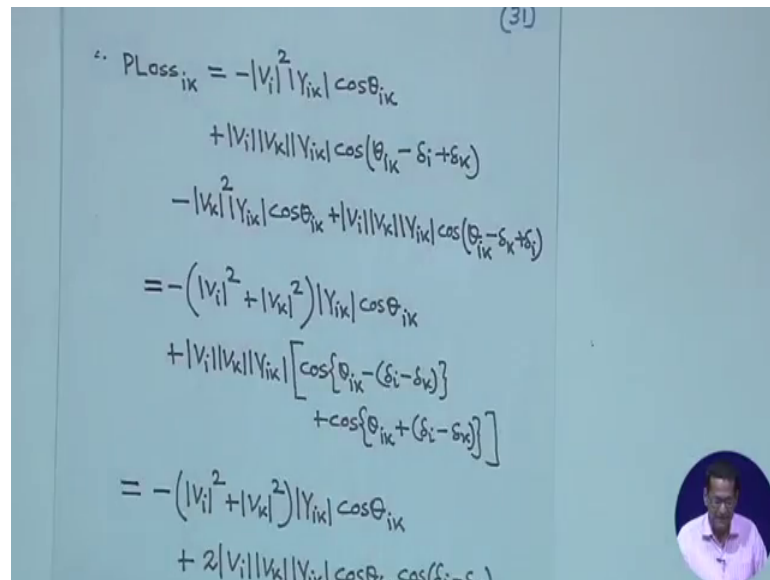 (31)
∴ PLoss_{ik} = -|V_i|^2|Y_{ik}| cosθ_{ik}
+|V_i||V_k||Y_{ik}| cos(θ_{ik} - δ_i + δ_k)
-|V_k|^2|Y_{ik}| cosθ_{ik} + |V_i||V_k||Y_{ik}| cos(θ_{ik} - δ_k + δ_i)
= -(|V_i|^2 + |V_k|^2)|Y_{ik}| cosθ_{ik}
+|V_i||V_k||Y_{ik}| [cos{θ_{ik} - (δ_i - δ_k)}
+cos{θ_{ik} + (δ_i - δ_k)}]
= -(|V_i|^2 + |V_k|^2)|Y_{ik}| cosθ_{ik}
+ 2|V_i||V_k||Y_{ik}| cosθ cos(δ_i - δ